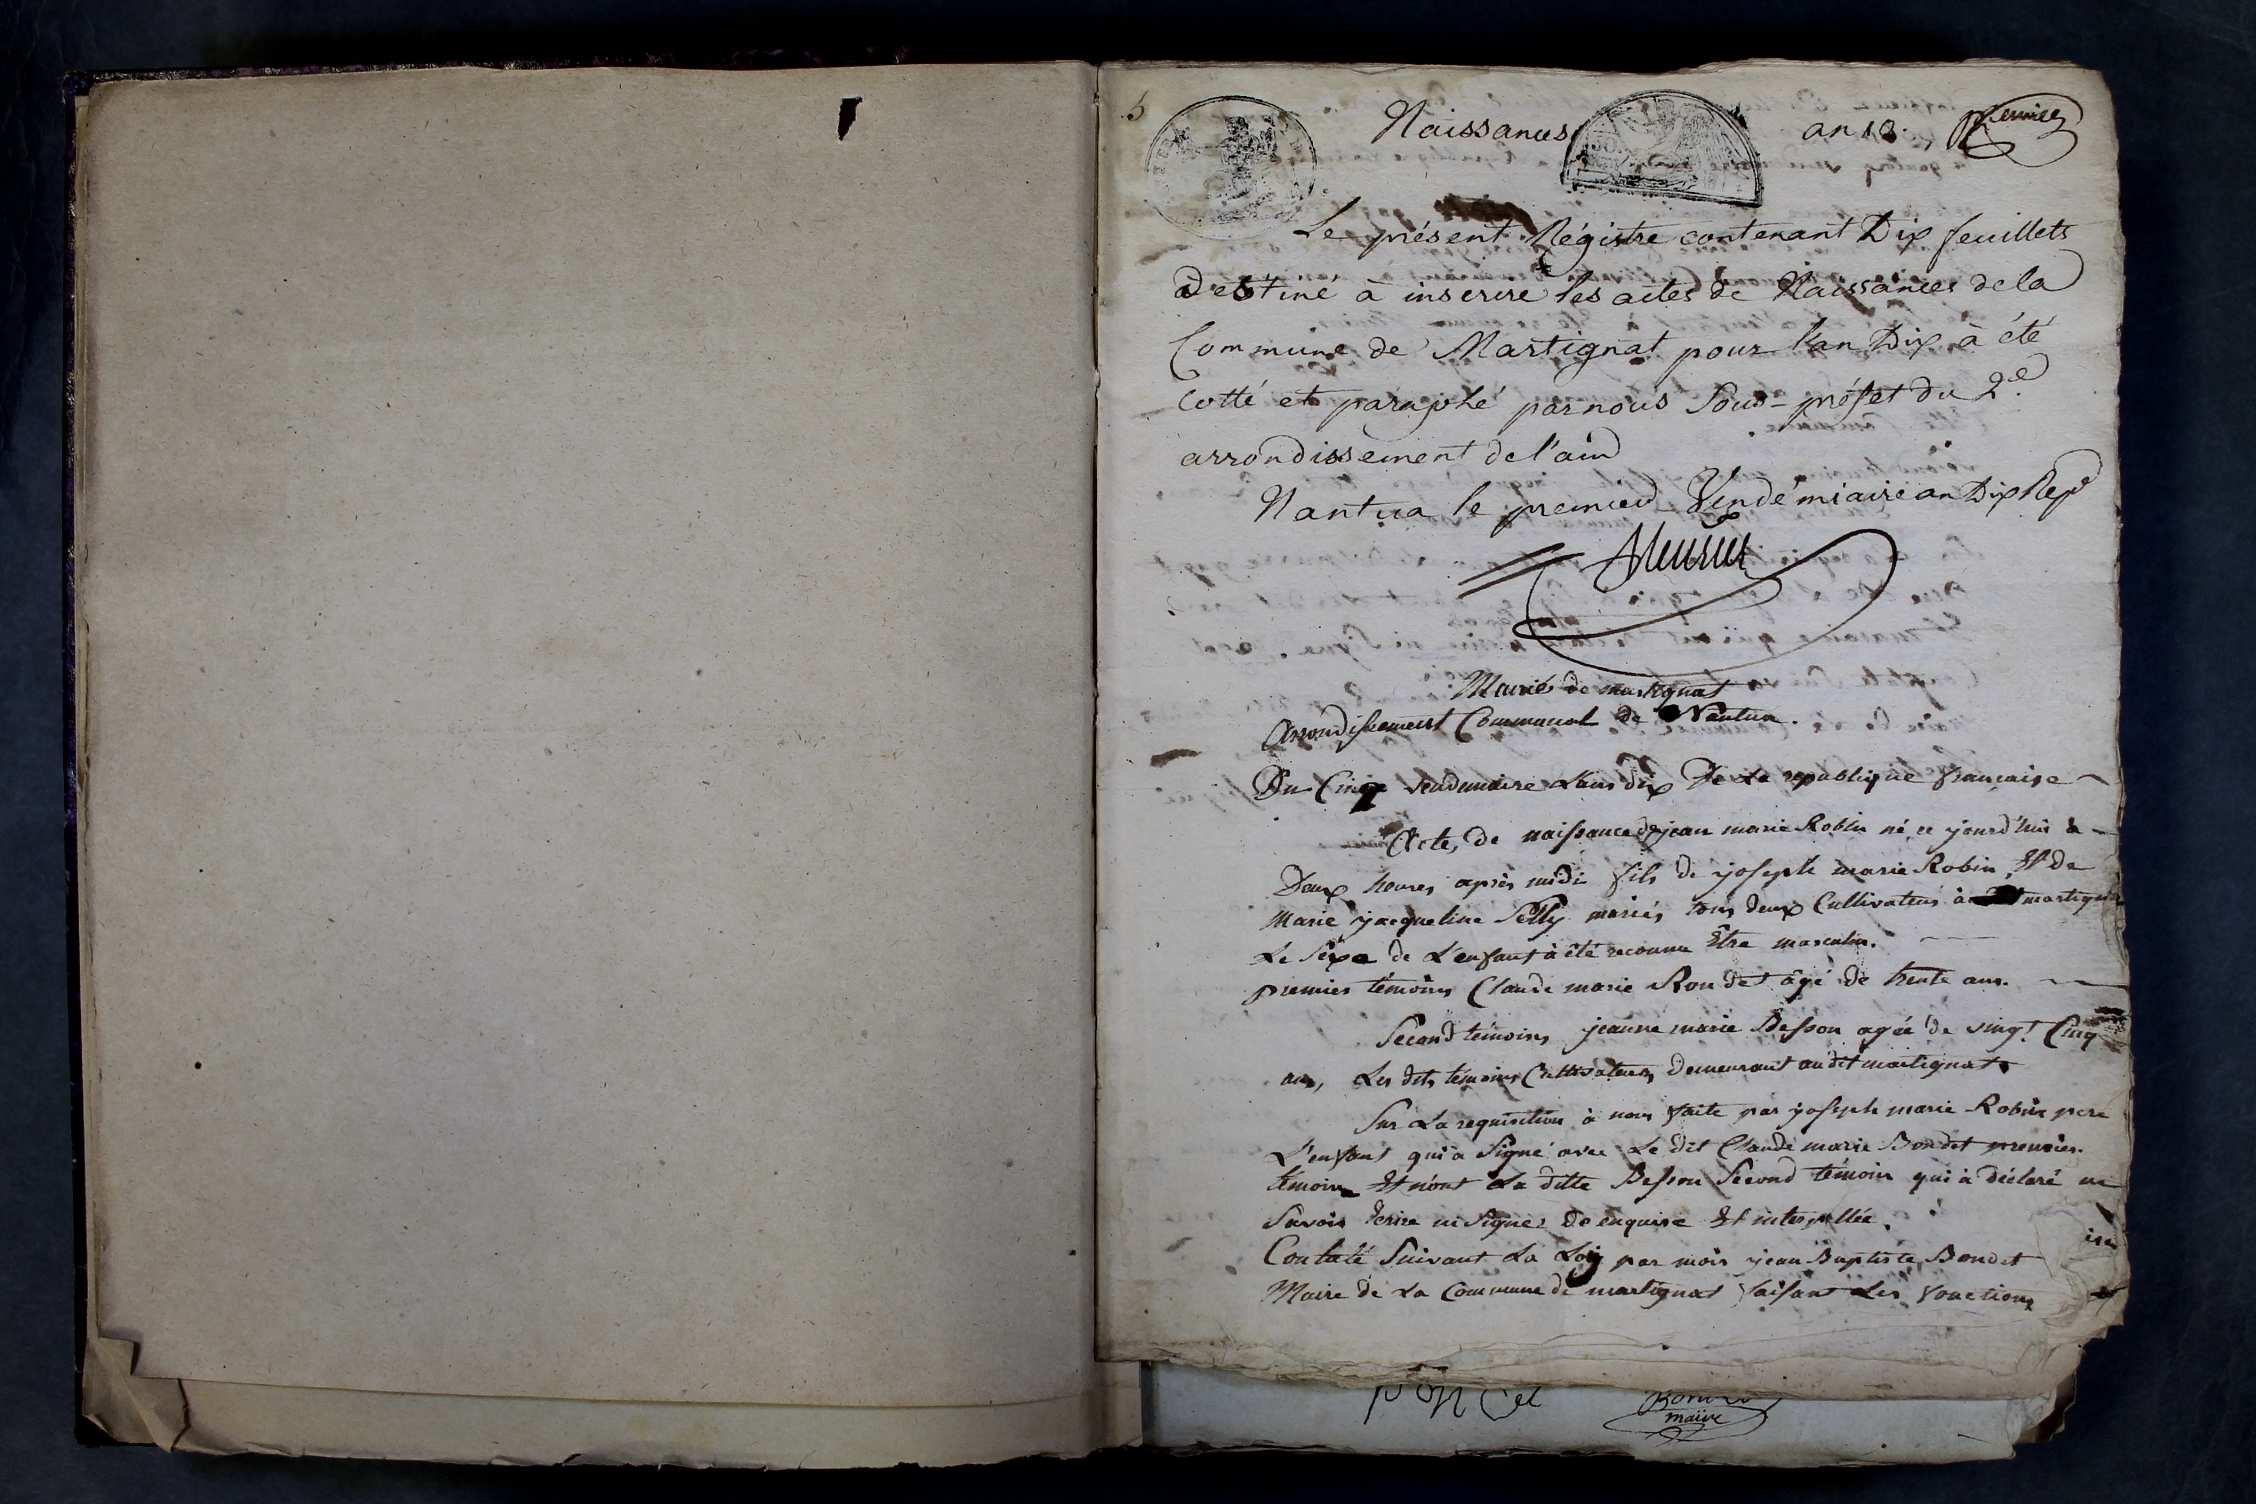 5
Naissances an 10. premier
Le présent Régistre contenant Dix feuillets
Destiné à inscrire les actes de Naissances de la
Commune de Martignat pour l'an Dix à été
Cotté et paraphé par nous Sous-préfet du 2.e
arrondissement de l'ain
Nantua le premier Vendémiaire an Dix Rep.
Mairie de martignat
Arrondissement Communal de Nantua.
Du Cinq vendemiaire L'ans dix De La republique francaise
Acte, de naissance de jean marie Robin né ce jourd'hui a
Deux heures après midi fils de joseph marie Robin Et de
Marie jacqueline mariés tous deux Cultivateurs à martignat
Le Sexe de L'enfant à été reconnu Être masculin.
premier témoins Claude marie Bondet âgé de trente ans.
Second témoins jeanne marie Besson agée de vingt Cinq
ans, Les dits témoins Cultivateurs Demeurant au dit martignat
Sur La requisition à nous faite par joseph marie Robin pere
L'enfant qui a Signé avec Le dit Claude marie Bondet premier
témoin Et non La ditte Besson Second témoin qui à déclaré ne
Savoir Ecrire ni Signer de enquise Et interpellée.
Constaté Suivant La Loy par mois jean Baptiste Bondet
Maire de La Commune de martignat faisant Les fonctions
ponCet
maire